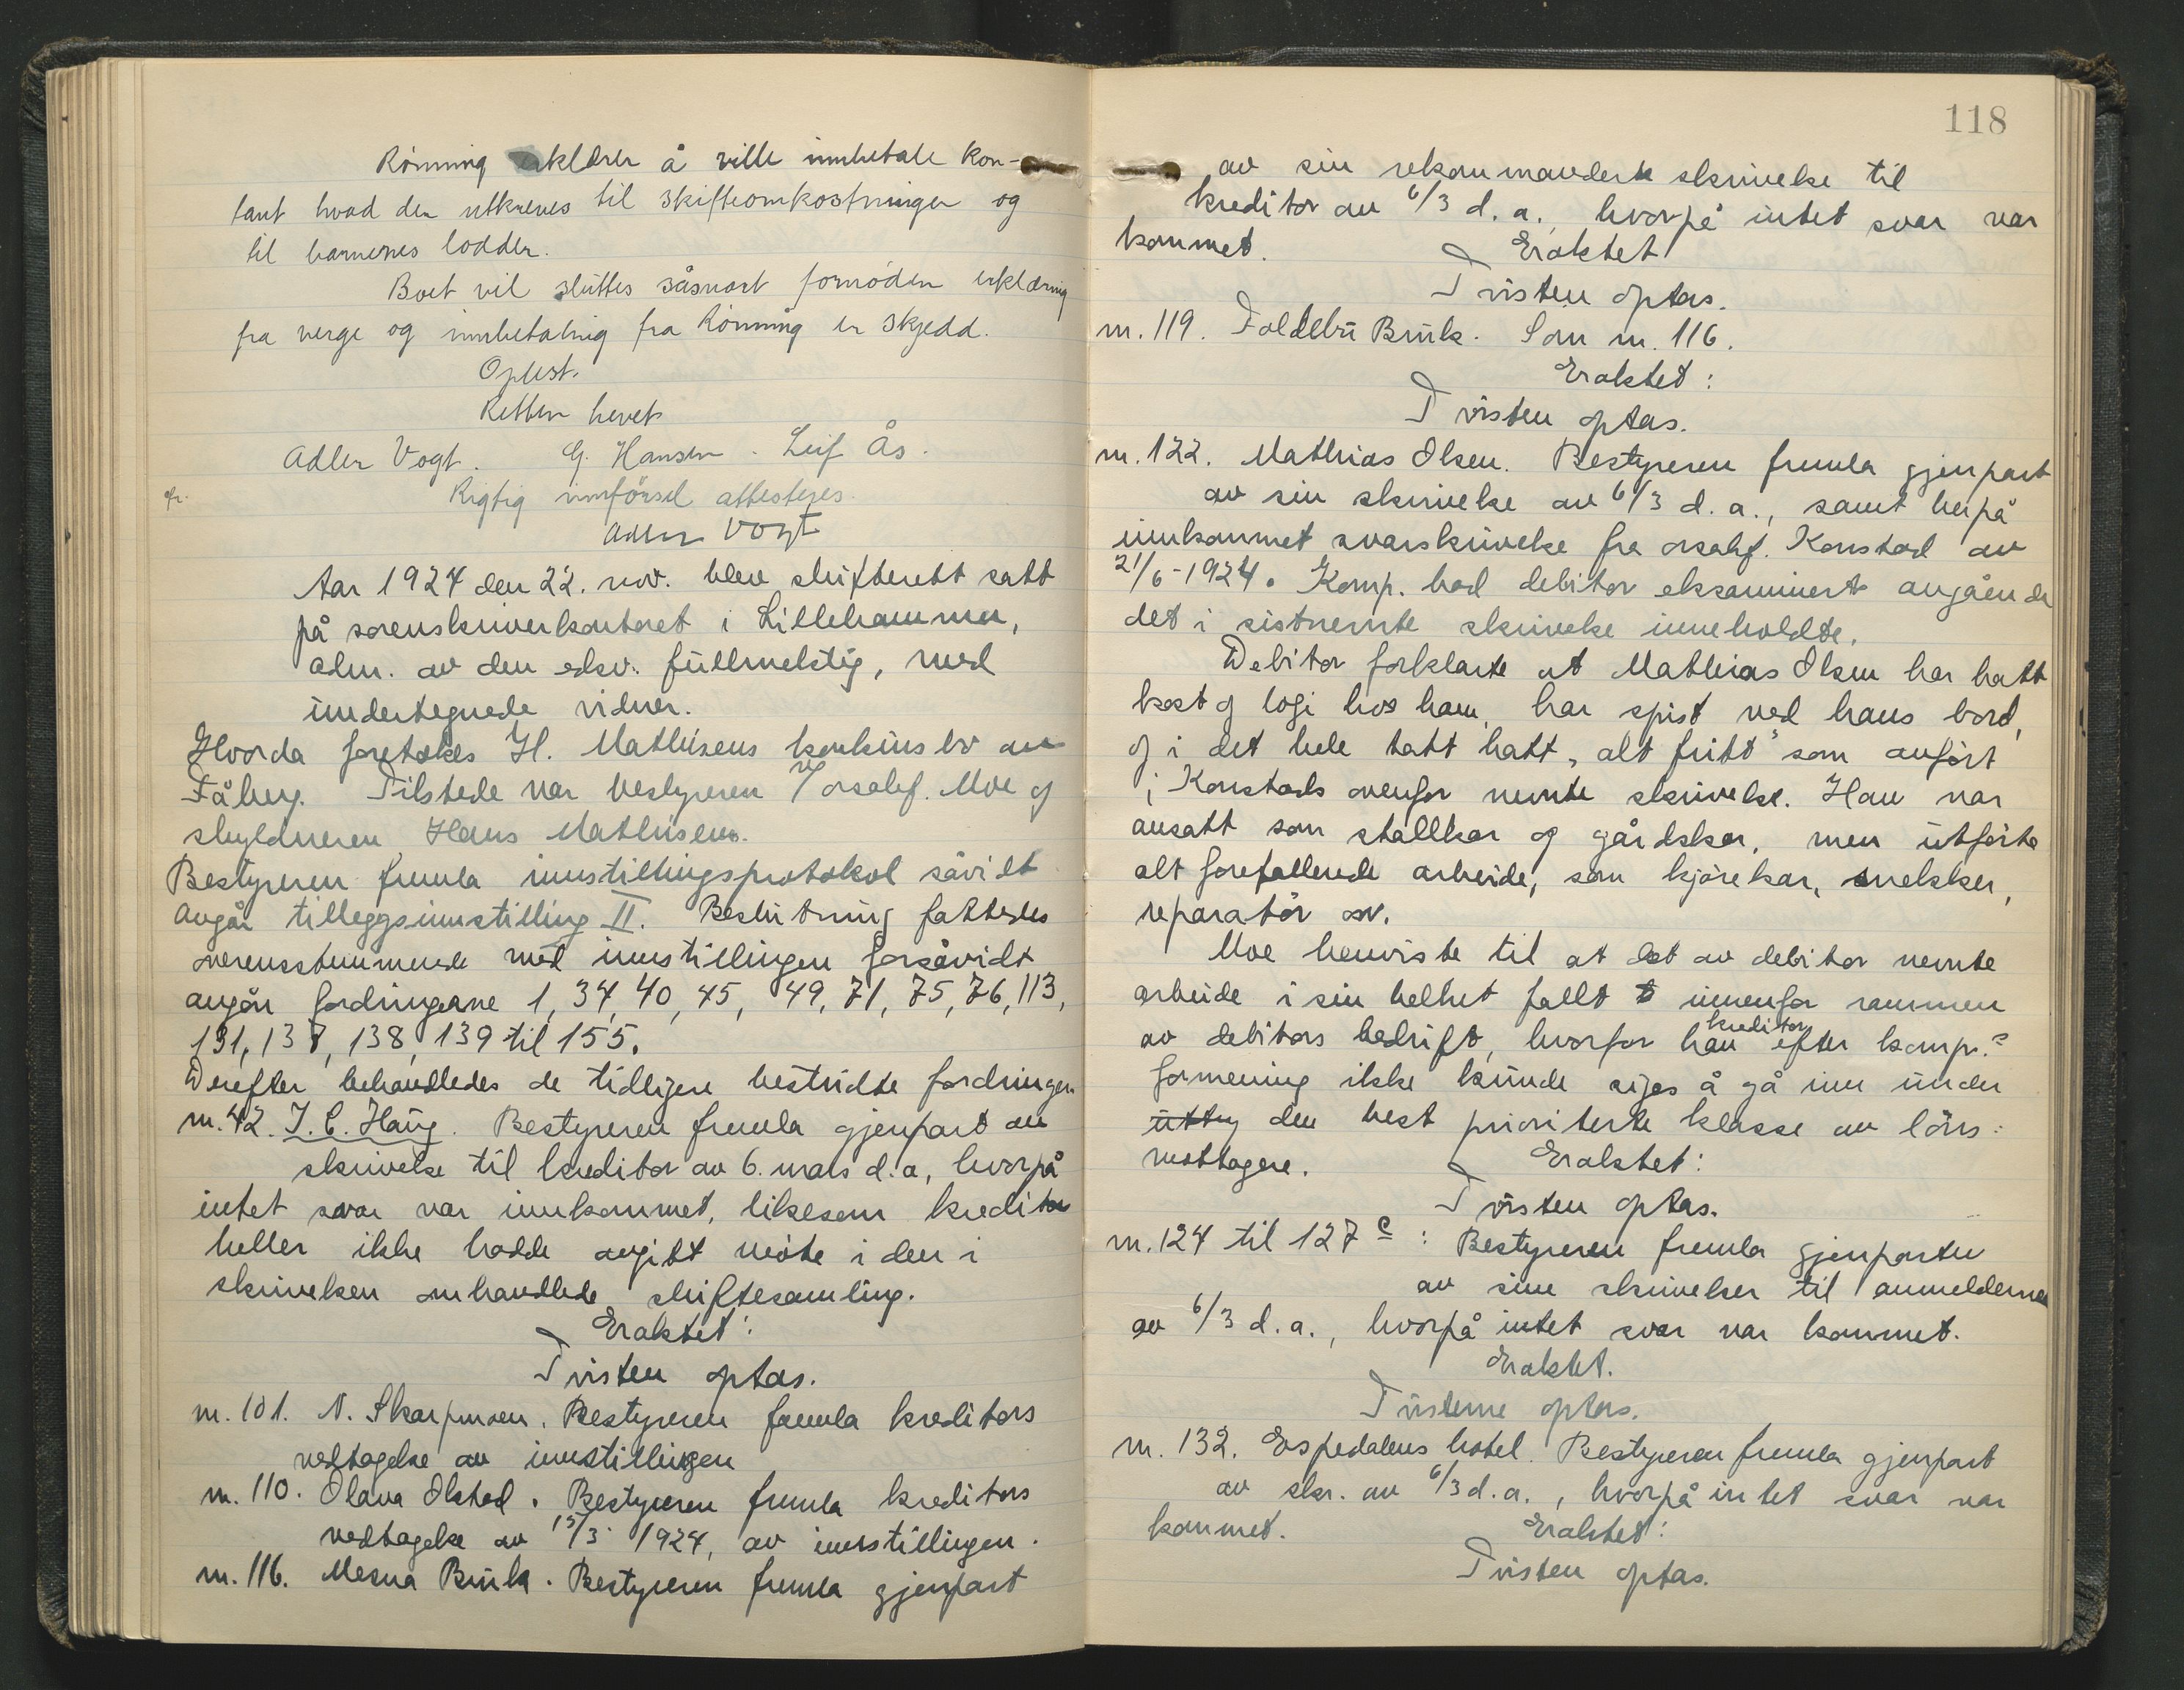 Rönning erklærer å ville innbetale kon-
tant hvad der utkreves til skifteomkostninger og
til barnenes lodder.
Boet vil sluttes såsnart fornöden erklæring
fra verge og innbetalnig fra Rönning er skjedd.
Oplest.
Retten hevet
Adler Vogt. G. Hansen. Leif Ås.
Rigtig innförsel attesteres.
Adler Vogt
Aar 1924 den 22. nov. blev skifterett satt
på sorenskriverkontoret i Lillehammer,
adm. av den edsv. fullmektig, med
undertegnede vidner.
Hvorda foretokes H. Mathisens konkursbo av
Fåberg. Tilstede var bestyreren orsakf. Moe og
skyldneren Hans Mathisen.
Bestyreren fremla innstillingsprotokol såvidt
angår tilleggsinnstilling II. Beslutning fattedes
overensstemmende med innstillingen forsåvidt
angår fordringene 1, 34, 40, 45, 49, 71, 75, 76, 113,
131, 137, 138, 139 til 155.
Derefter behandledes de tidligere bestridte fordringer
nr. 42. J. C. Haug. Bestyreren fremla gjenpart av
skrivelse til kreditor av 6. mars d.a, hvorpå
intet svar var innkommet, likesom kreditor
heller ikke hadde avgitt möte i den i
skrivelsen omhandlede skiftesamling.
Eraktet:
Tvisten optas.
nr. 101. N. Skarpmoen. Bestyreren fremla kreditors
vedtagelse av innstillingen
nr. 110. Olava Olstad. Bestyreren fremla kreditors
vedtagelse av 15/3 1924, av innstillingen.
nr. 116. Mesna Bruk. Bestyreren fremla gjenpart
118
av sin rekommanderte skrivelse til
kreditor av 6/3 d.a., hvorpå intet svar var
kommet. Eraktet
Tvisten optas.
nr. 119. Foldebu Bruk. Som nr. 116.
Eraktet:
Tvisten optas.
nr. 122. Mathias Olsen. Bestyreren fremla gjenpart
av sin skrivelse av 6/3 d.a., samt herpå
innkommet svarskrivelse fra orsakf. Konstad av
21/6-1924. Komp. bad debitor eksaminert angående
det i sistnevnte skrivelse inneholdte.
Debitor forklarte at Mathias Olsen har hatt
kost og logi hos ham, har spist ved hans bord,
og i det hele tatt hatt „alt fritt" som anfört
i Konstads ovenfor nevnte skrivelse. Han var
ansatt som stallkar og gårdskar, men utförte
alt forefallende arbeide, som kjörekar, snekker,
reparatör osv.
Moe henviste til at det av debitor nevnte
arbeide i sin helhet fallt innenfor rammen
av debitors bedrift, hvorfor han kreditor efter komp.s
formening ikke kunde siges å gå inn under
den best prioriterte klasse av löns-
mottagere. Eraktet:
Tvisten optas.
nr. 124 til 127 c: Bestyreren fremla gjenparten
av sine skrivelser til anmelderne
av 6/3 d.a., hvorpå intet svar var kommet.
Eraktet.
Tvisterne optas.
nr. 132. Espedalens hotel. Bestyreren fremla gjenpart
av skr. av 6/3 d.a., hvorpå intet svar var
kommet. Eraktet:
Tvisten optas.